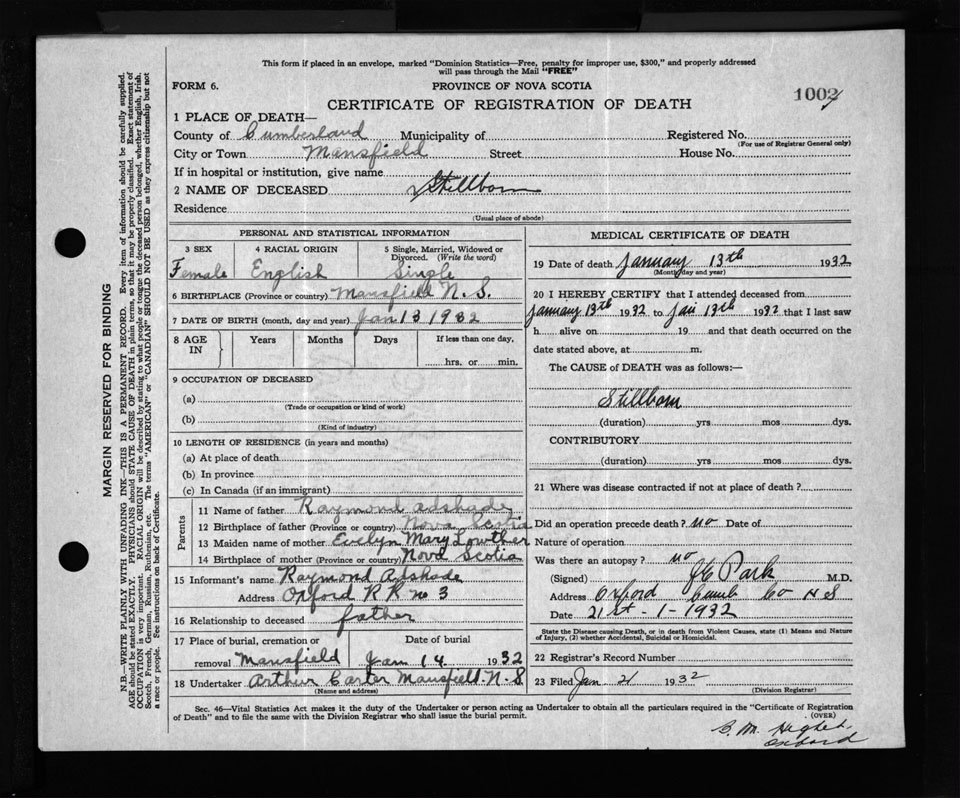 This form if placed in an envelope, marked "Dominion Statistics—Free, penalty for improper use, $300," and properly addressed
will pass through the Mail "FREE"
FORM 6.
PROVINCE OF NOVA SCOTIA
1002
CERTIFICATE OF REGISTRATION OF DEATH
1 PLACE OF DEATH—
County of Cumberland Municipality of Registered No.
(For use of Registrar General only)
City or Town Mansfield Street House No.
If in hospital or institution, give name
2 NAME OF DECEASED Stillborn
Residence
(Usual place of abode)
PERSONAL AND STATISTICAL INFORMATION
3 SEX 4 RACIAL ORIGIN 5 Single, Married, Widowed or
Divorced. (Write the word)
Female English Single
6 BIRTHPLACE (Province or country) Mansfield N. S.
7 DATE OF BIRTH (month, day and year) Jan 13 1932
8 AGE IN Years Months Days If less than one day,
hrs. or min.
9 OCCUPATION OF DECEASED
(a)
(Trade or occupation or kind of work)
(b)
(Kind of industry)
10 LENGTH OF RESIDENCE (in years and months)
(a) At place of death
(b) In province
(c) In Canada (if an immigrant)
Parents
11 Name of father Raymond Adshade
12 Birthplace of father (Province or country) Nova Scotia
13 Maiden name of mother Evelyn Mary Lowther
14 Birthplace of mother (Province or country) Nova Scotia
15 Informant's name Raymond Adshade
Address Oxford RR no 3
16 Relationship to deceased father
17 Place of burial, cremation or Date of burial
removal Mansfield Jan 14 1932
18 Undertaker Arthur Carter Mansfield N. S
(Name and address)
MEDICAL CERTIFICATE OF DEATH
19 Date of death January 13th 1932
(Month, day and year)
20 I HEREBY CERTIFY that I attended deceased from
January 13th 1932 to Jan 13th 1932 that I last saw
h alive on 19 and that death occurred on the
date stated above, at m.
The CAUSE of DEATH was as follows:—
Stillborn
(duration) yrs mos dys.
CONTRIBUTORY
(duration) yrs mos dys.
21 Where was disease contracted if not at place of death?
Did an operation precede death? no Date of
Nature of operation
Was there an autopsy? no
(Signed) Park M.D.
Address Oxford Cumb Co N S
Date 21st - 1 - 1932
State the Disease causing Death, or in death from Violent Causes, state (1) Means and Nature
of Injury, (2) whether Accidental, Suicidal or Homicidal.
22 Registrar's Record Number
23 Filed Jan 21 1932
(Division Registrar)
Sec. 46—Vital Statistics Act makes it the duty of the Undertaker or person acting as Undertaker to obtain all the particulars required in the "Certificate of Registration
of Death" and to file the same with the Division Registrar who shall issue the burial permit. (OVER)
B. M.
Oxford
MARGIN RESERVED FOR BINDING
N.B.—WRITE PLAINLY WITH UNFADING INK—THIS IS A PERMANENT RECORD. Every item of information should be carefully supplied.
AGE should be stated EXACTLY. PHYSICIANS should STATE CAUSE OF DEATH in plain terms, so that it may be properly classified. Exact statement of
OCCUPATION is very important. RACIAL ORIGIN will be described by stating to what people or tongue the deceased person belonged, whether English, Irish,
Scotch, French, German, Russian, Ruthenian, etc. The terms "AMERICAN" or "CANADIAN" SHOULD NOT BE USED as they express citizenship but not
a race or people. See instructions on back of Certificate.